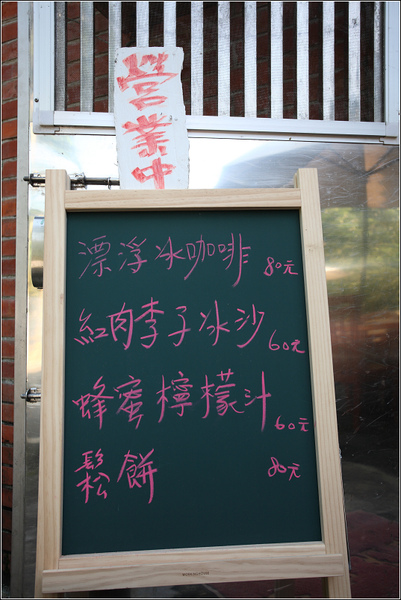 營業中
漂浮冰咖啡 80元
紅肉李子冰沙 60元
蜂蜜檸檬汁 60元
鬆餅 80元